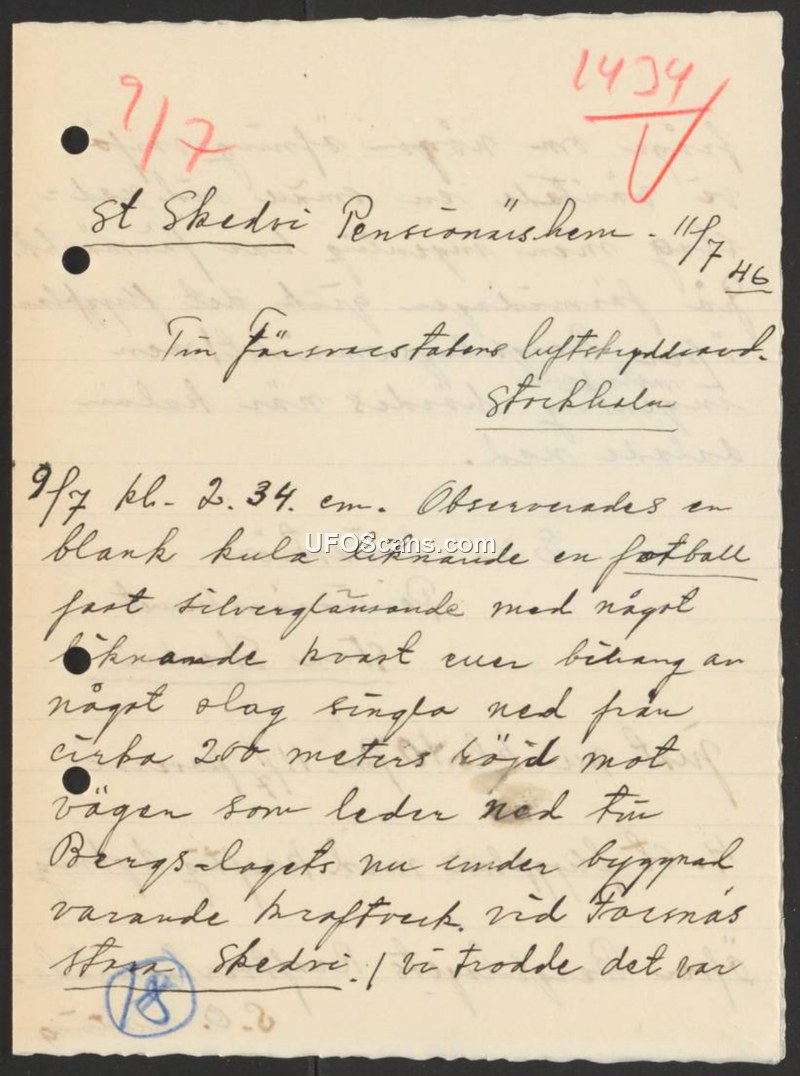 9/7
1434
V
St Skedvi Pensionärshem - 11/7 46
Till Försvarsstabens luftskyddsavd.
Stockholm
9/7 kl. 2.34. em. Observerades en
blank kula liknande en fotball
UFOScans.com
fast silverglänsande med något
liknande kvast eller bihang av
något slag singla ned från
cirka 200 meters höjd mot
vägen som leder ned till
Bergslagets nu under byggnad
varande kraftverk. vid Forsnäs
Stora Skedvi. / Vi trodde det var
18